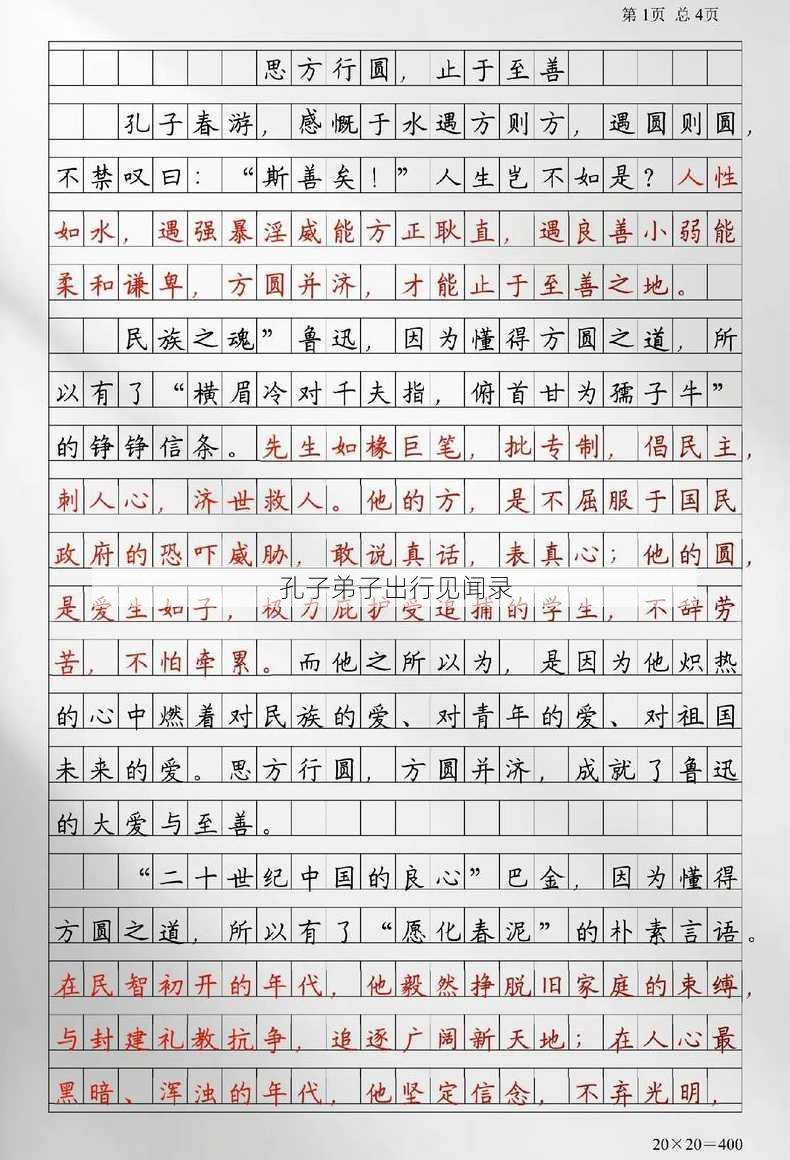 第1页 总4页
思方行圆，止于至善
孔子春游，感慨于水遇方则方，遇圆则圆，
不禁叹曰：“斯善矣！”人生岂不如是？人性
如水，遇强暴淫威能方正耿直，遇良善小弱能
柔和谦卑，方圆并济，才能止于至善之地。
民族之魂”鲁迅，因为懂得方圆之道，所
以有了“横眉冷对千夫指，俯首甘为孺子牛”
的铮铮信条。先生如椽巨笔，批专制，倡民主，
刺人心，济世救人。他的方，是不屈服于国民
政府的恐吓威胁，敢说真话，表真心；他的圆，
孔子弟子出行见闻录
是爱生如子，极力庇护受追捕的学生，不辞劳
苦，不怕牵累。而他之所以为，是因为他炽热
的心中燃着对民族的爱、对青年的爱、对祖国
未来的爱。思方行圆，方圆并济，成就了鲁迅
的大爱与至善。
“二十世纪中国的良心”巴金，因为懂得
方圆之道，所以有了“愿化春泥”的朴素言语。
在民智初开的年代，他毅然挣脱旧家庭的束缚，
与封建礼教抗争，追逐广阔新天地；在人心最
黑暗、浑浊的年代，他坚定信念，不弃光明，
20×20=400